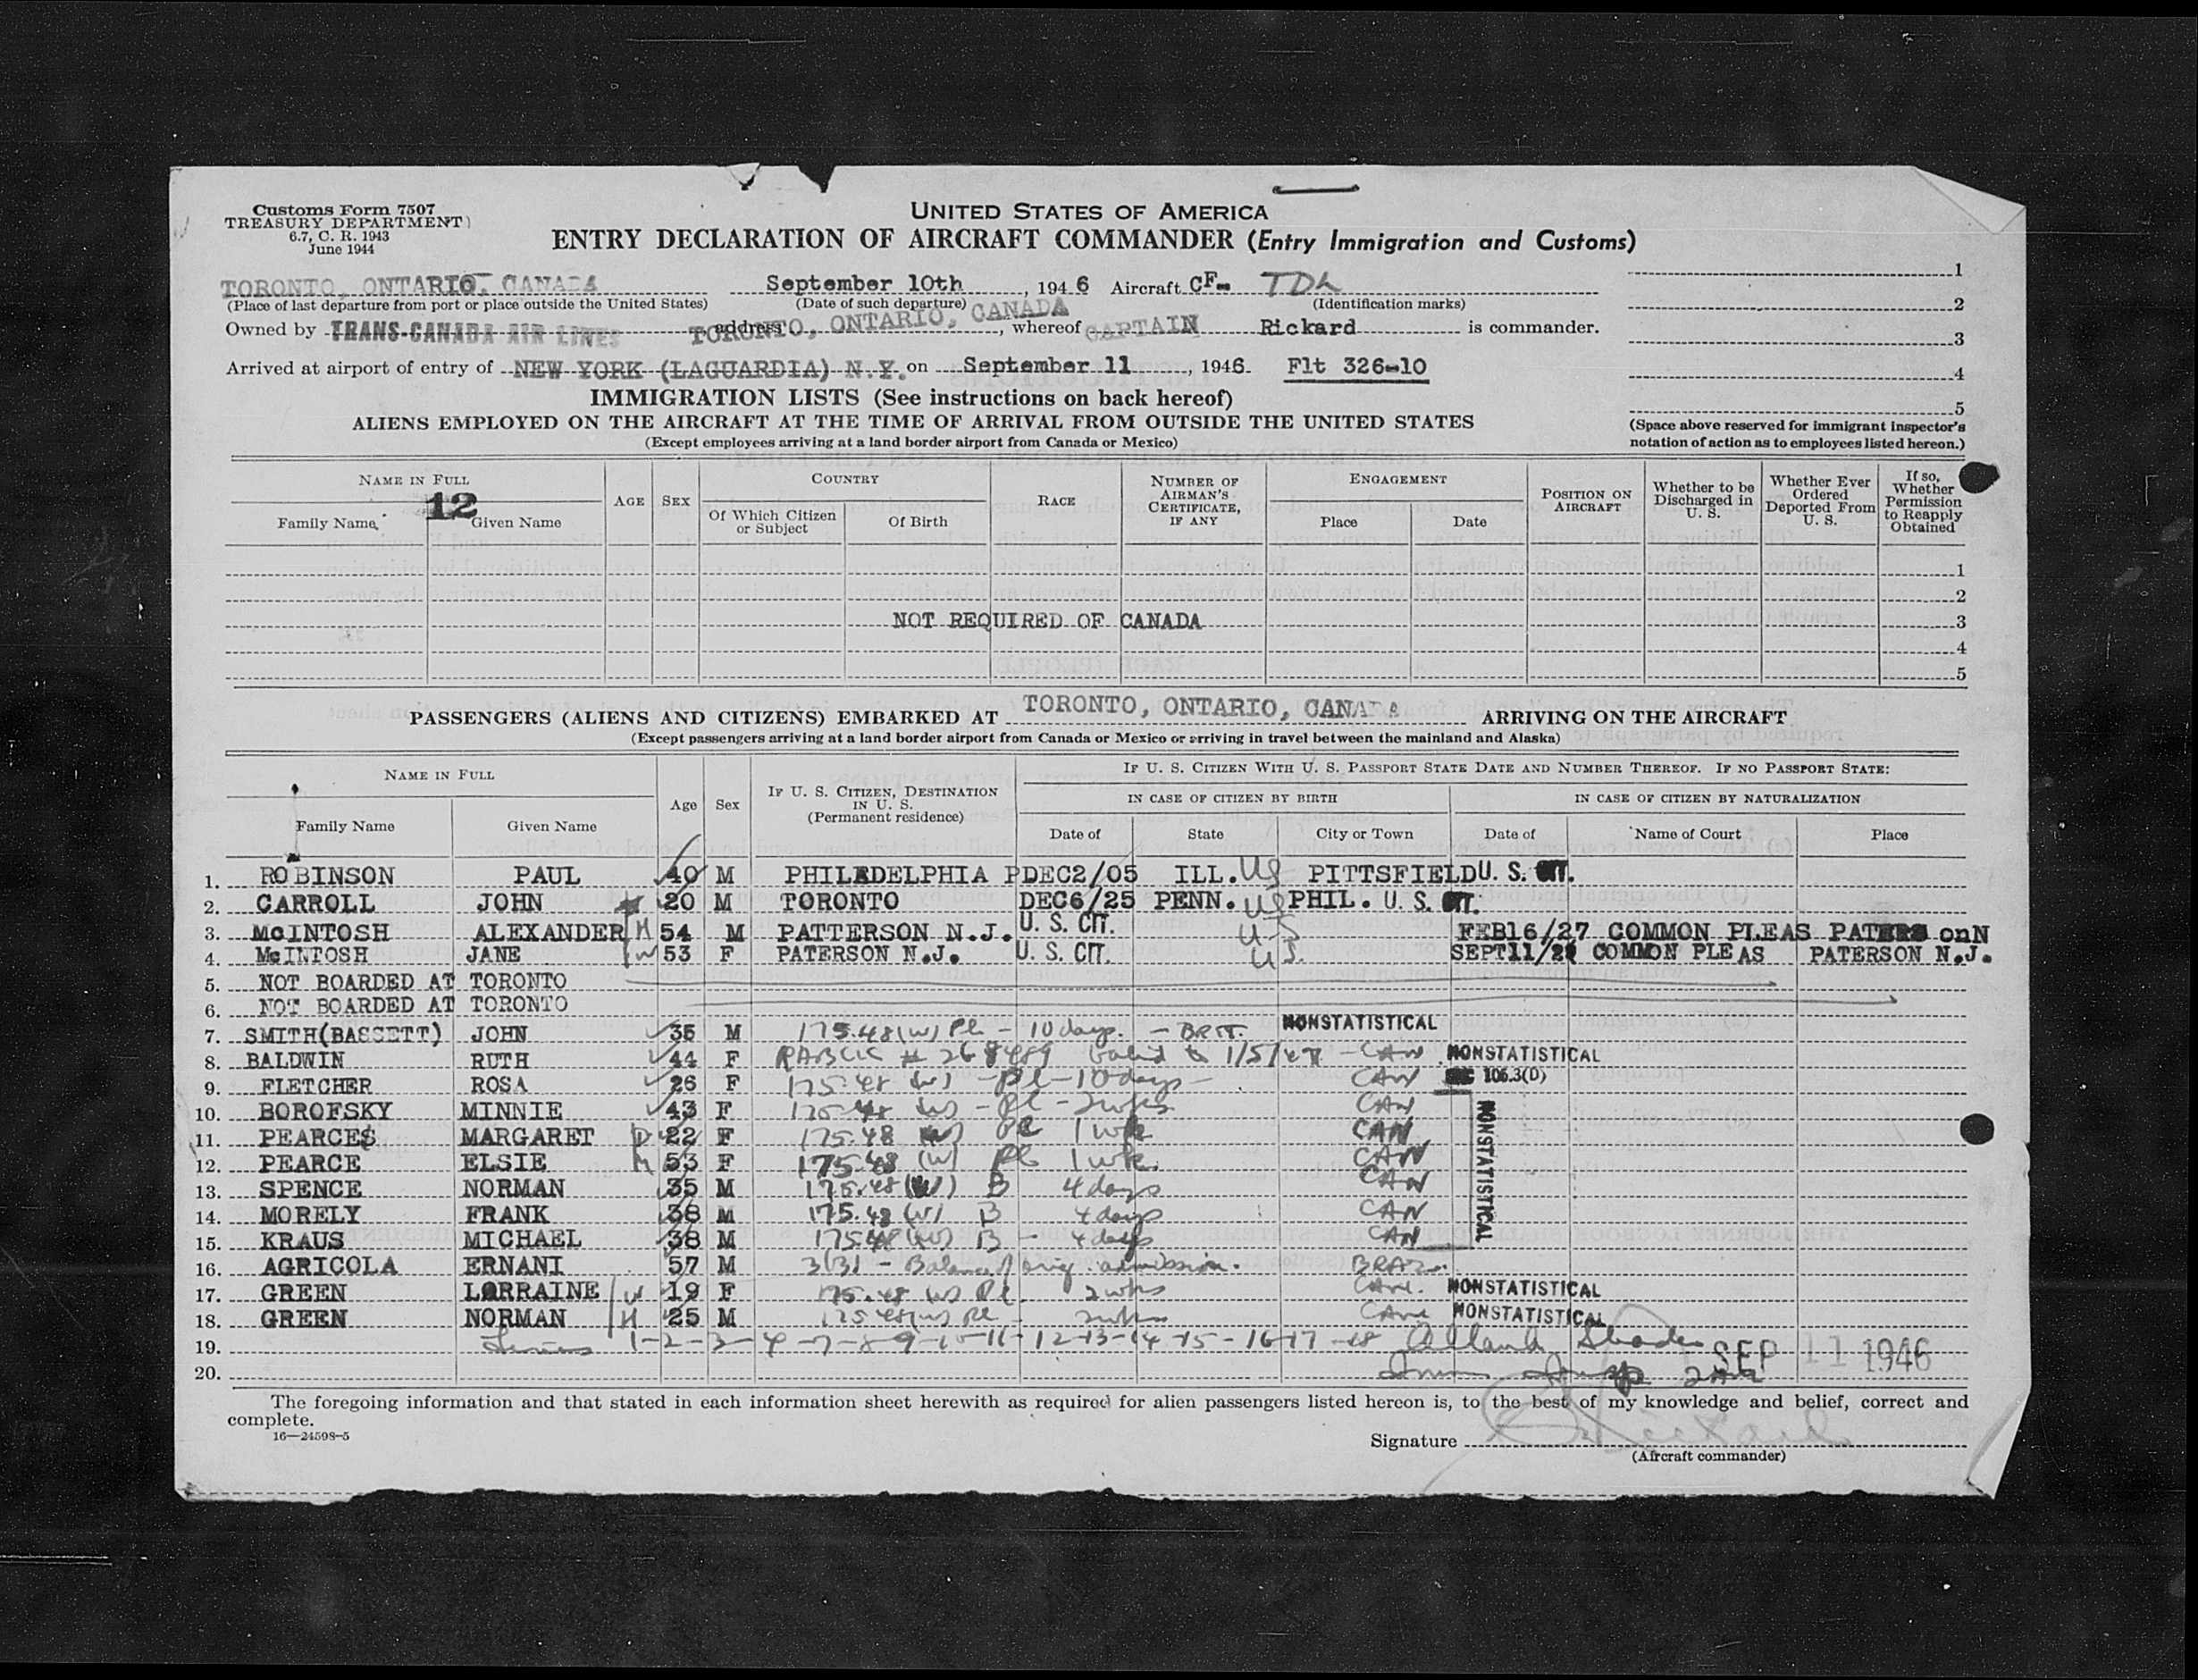 Customs Form 7507
TREASURY DEPARTMENT
6.7, C. R. 1943
June 1944
UNITED STATES OF AMERICA
ENTRY DECLARATION OF AIRCRAFT COMMANDER (Entry Immigration and Customs)
TORONTO, ONTARIO, CANADA September 10th, 1946 Aircraft CF- TDL
(Place of last departure from port or place outside the United States) (Date of such departure) (Identification marks)
Owned by TRANS-CANADA AIR LINES address TORONTO, ONTARIO, CANADA, whereof CAPTAIN Rickard is commander.
Arrived at airport of entry of NEW YORK (LAGUARDIA) N.Y. on September 11, 1946. Flt 326-10
1
2
3
4
5
(Space above reserved for immigrant inspector's notation of action as to employees listed hereon.)
IMMIGRATION LISTS (See instructions on back hereof)
ALIENS EMPLOYED ON THE AIRCRAFT AT THE TIME OF ARRIVAL FROM OUTSIDE THE UNITED STATES
(Except employees arriving at a land border airport from Canada or Mexico)
NAME IN FULL AGE SEX COUNTRY RACE NUMBER OF AIRMAN'S CERTIFICATE, IF ANY ENGAGEMENT POSITION ON AIRCRAFT Whether to be Discharged in U. S. Whether Ever Ordered Deported From U. S. If so, Whether Permission to Reapply Obtained
12
Family Name Given Name Of Which Citizen or Subject Of Birth Place Date
1
2
NOT REQUIRED OF CANADA 3
4
5
PASSENGERS (ALIENS AND CITIZENS) EMBARKED AT TORONTO, ONTARIO, CANADA ARRIVING ON THE AIRCRAFT
(Except passengers arriving at a land border airport from Canada or Mexico or arriving in travel between the mainland and Alaska)
NAME IN FULL Age Sex IF U. S. CITIZEN, DESTINATION IN U. S. (Permanent residence) IF U. S. CITIZEN WITH U. S. PASSPORT STATE DATE AND NUMBER THEREOF. IF NO PASSPORT STATE:
IN CASE OF CITIZEN BY BIRTH IN CASE OF CITIZEN BY NATURALIZATION
Family Name Given Name Date of State City or Town Date of Name of Court Place
1. ROBINSON PAUL 40 M PHILADELPHIA P DEC2/05 ILL. US PITTSFIELD U. S. CIT.
2. CARROLL JOHN 20 M TORONTO DEC6/25 PENN. US PHIL. U. S. CIT.
3. McINTOSH ALEXANDER H 54 M PATTERSON N.J. U. S. CIT. US FEB16/27 COMMON PLEAS PATERS onN
4. McINTOSH JANE W 53 F PATERSON N.J. U. S. CIT. US. SEPT11/29 COMMON PLEAS PATERSON N.J.
5. NOT BOARDED AT TORONTO
6. NOT BOARDED AT TORONTO
7. SMITH(BASSETT) JOHN 35 M 175.48(W) Pl - 10 days. - BRIT. NONSTATISTICAL
8. BALDWIN RUTH 44 F RABCIC # 268489 Valid to 1/5/47 - CAN NONSTATISTICAL
9. FLETCHER ROSA 26 F 175.48 (w) - Pl - 10 days - CAN SEC 106.3(D)
10. BOROFSKY MINNIE 43 F 175.48 (w) - Pl - 2 wks CAN
11. PEARCE$ MARGARET D 22 F 175.48 (w) Pl 1 wk CAN
12. PEARCE ELSIE M 53 F 175.48 (w) Pl 1 wk. CAN
13. SPENCE NORMAN 35 M 175.48 (w) B 4 days CAN
14. MORELY FRANK 38 M 175.48 (w) B 4 days CAN
15. KRAUS MICHAEL 38 M 175.48 (w) B - 4 days CAN
NONSTATISTICAL
16. AGRICOLA ERNANI 57 M 3(3) - Balance of orig. admission. BRAZ.
17. GREEN LORRAINE W 19 F 175.48 (w) Pl. 2 wks Can. NONSTATISTICAL
18. GREEN NORMAN H 25 M 175.48(w) Pl 2 wks CAN NONSTATISTICAL
19. Lines 1-2-3-4-7-8-9-10-11-12-13-14-15-16-17-18
SEP 11 1946
20. Imm Insp
The foregoing information and that stated in each information sheet herewith as required for alien passengers listed hereon is, to the best of my knowledge and belief, correct and
complete.
16—24598-5
Signature Rickard
(Aircraft commander)